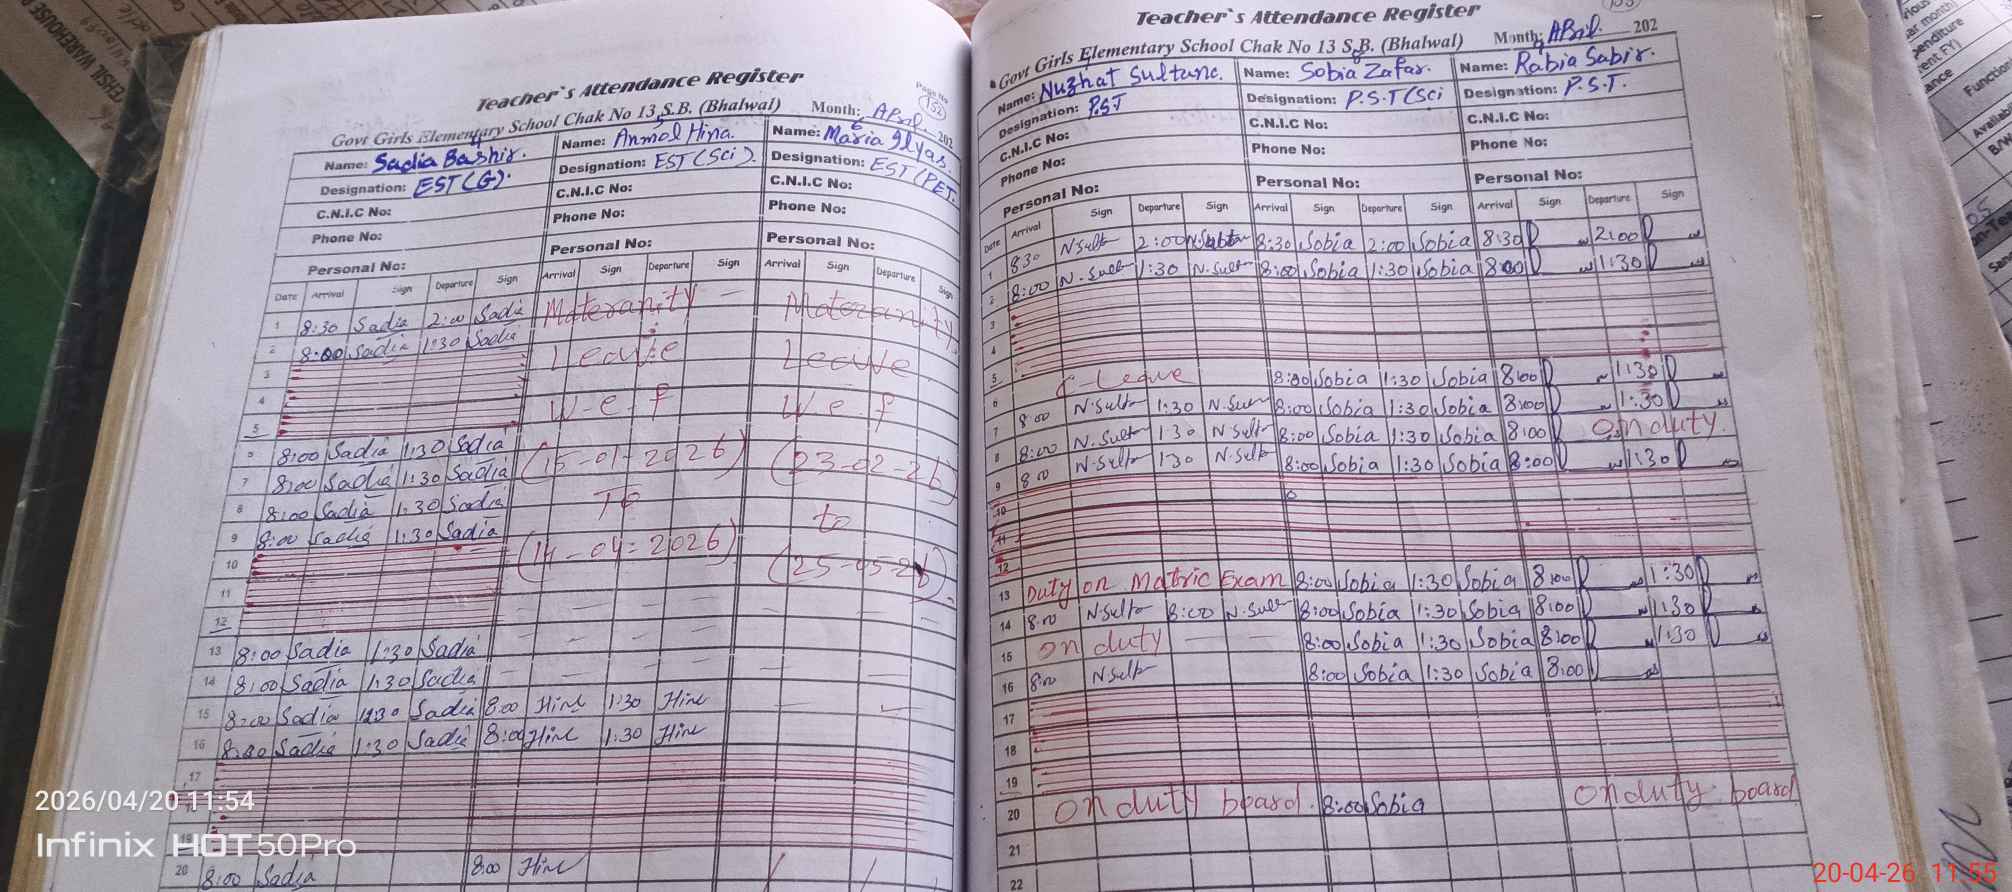 Teacher`s Attendance Register
Page No
152
Govt Girls Elementary School Chak No 13 S.B. (Bhalwal) Month: April 202
Name: Sadia Bashir. Name: Anmol Hina. Name: Maria Ilyas
Designation: EST(G). Designation: EST(Sci). Designation: EST(PET
C.N.I.C No: C.N.I.C No: C.N.I.C No:
Phone No: Phone No: Phone No:
Personal No: Personal No: Personal No:
Date Arrival Sign Departure Sign Arrival Sign Departure Sign Arrival Sign Departure Sign
1 8:30 Sadia 2:00 Sadia Materanity Materanity
2 8:00 Sadia 1:30 Sadia
3 Leave Leave
4
5 W.e.f W.e.f
6 8:00 Sadia 1:30 Sadia
7 8:00 Sadia 1:30 Sadia (15-01-2026) (23-02-26)
8 8:00 Sadia 1:30 Sadia To to
9 8:00 Sadia 1:30 Sadia
10 (14-04-2026) (25-05-26)
11
12
13 8:00 Sadia 1:30 Sadia
14 8:00 Sadia 1:30 Sadia
15 8:00 Sadia 1:30 Sadia 8:00 Hina 1:30 Hina
16 8:00 Sadia 1:30 Sadia 8:00 Hina 1:30 Hina
17
18
19
20 8:00 Sadia 8:00 Hina
Teacher`s Attendance Register
153
Govt Girls Elementary School Chak No 13 S.B. (Bhalwal) Month: April. 202
Name: Nuzhat Sultana. Name: Sobia Zafar. Name: Rabia Sabir.
Designation: P.S.T Designation: P.S.T(Sci Designation: P.S.T.
C.N.I.C No: C.N.I.C No: C.N.I.C No:
Phone No: Phone No: Phone No:
Personal No: Personal No: Personal No:
Date Arrival Sign Departure Sign Arrival Sign Departure Sign Arrival Sign Departure Sign
1 8:30 N Sult 2:00 N.Sult 8:30 Sobia 2:00 Sobia 8:30 2:00
2 8:00 N.Sult 1:30 N.Sult 8:00 Sobia 1:30 Sobia 8:00 1:30
3
4
5
6 C-Leave 8:00 Sobia 1:30 Sobia 8:00 1:30
7 8:00 N.Sult 1:30 N.Sult 8:00 Sobia 1:30 Sobia 8:00 1:30
8 8:00 N.Sult 1:30 N.Sult 8:00 Sobia 1:30 Sobia 8:00 On duty.
9 8:00 N.Sult 1:30 N.Sult 8:00 Sobia 1:30 Sobia 8:00 1:30
10
11
12
13 Duty on Matric Exam 8:00 Sobia 1:30 Sobia 8:00 1:30
14 8:00 N.Sult 8:00 N.Sult 8:00 Sobia 1:30 Sobia 8:00 1:30
15 On duty 8:00 Sobia 1:30 Sobia 8:00 1:30
16 8:00 N.Sult 8:00 Sobia 1:30 Sobia 8:00
17
18
19
20 On duty board. 8:00 Sobia On duty board
21
22
TEHSIL WAREHOUSE
2026/04/20 11:54
Infinix HOT 50Pro
20-04-26 11:55